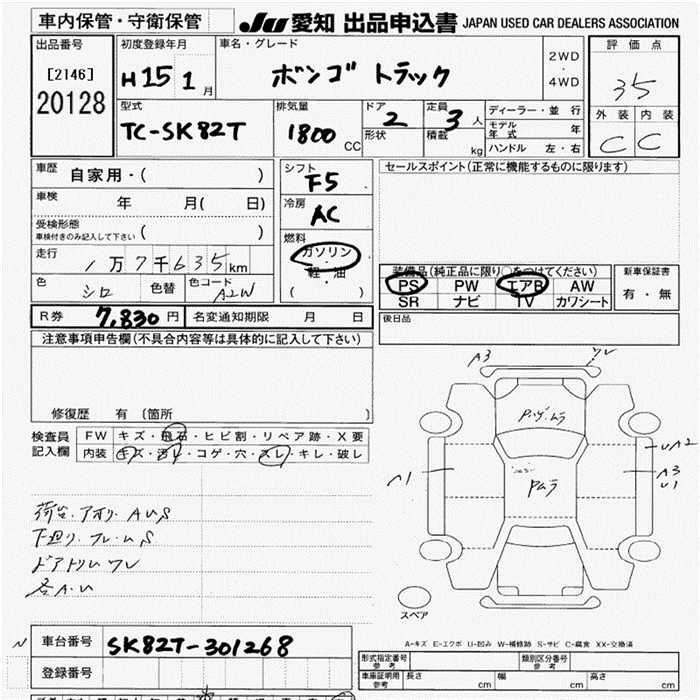 車内保管・守衛保管 JU 愛知 出品申込書 JAPAN USED CAR DEALERS ASSOCIATION
出品番号 初度登録年月 車名・グレード 評価点
[2146] H15 1月 ボンゴ トラック 2WD・4WD 35
20128
型式 排気量 ドア 2 定員 3人 ディーラー・並行 外装 内装
TC-SK82T 1800CC 形状 積載 kg モデル年式 年 C C
ハンドル 左・右
車歴 自家用・( ) シフト F5 セールスポイント(正常に機能するものに限ります)
車検 年 月( 日) 冷房 AC
受検形態 ( )
車検付きのみ記入して下さい
燃料 ガソリン・軽油 ( )
走行 1万7千635km
装備品(純正品に限り○をつけてください) 新車保証書
PS PW エアB AW 有・無
SR ナビ TV カワシート
色 シロ 色替 色コード A2W
R券 7,830円 名変通知期限 月 日 後日品
注意事項申告欄(不具合内容等は具体的に記入して下さい)
修復歴 有 〔箇所 〕
検査員記入欄 FW キズ・飛石・ヒビ割・リペア跡・X要
内装 キズ・汚レ・コゲ・穴・スレ・キレ・破レ
A3 ワレ
P.ゲ.ムラ
A1 Pムラ UA2
A3
U1
荷台.アオリ. A U S
下廻リ.フレーム S
ドアトリム ワレ
各A.U
スペア
A-キズ E-エクボ U-凹み W-補修跡 S-サビ C-腐食 XX-交換済
車台番号 SK82T-301268
登録番号
形式指定番号 参考 類別区分番号 参考
車庫証明用 参考 長さ cm 幅 cm 高さ cm